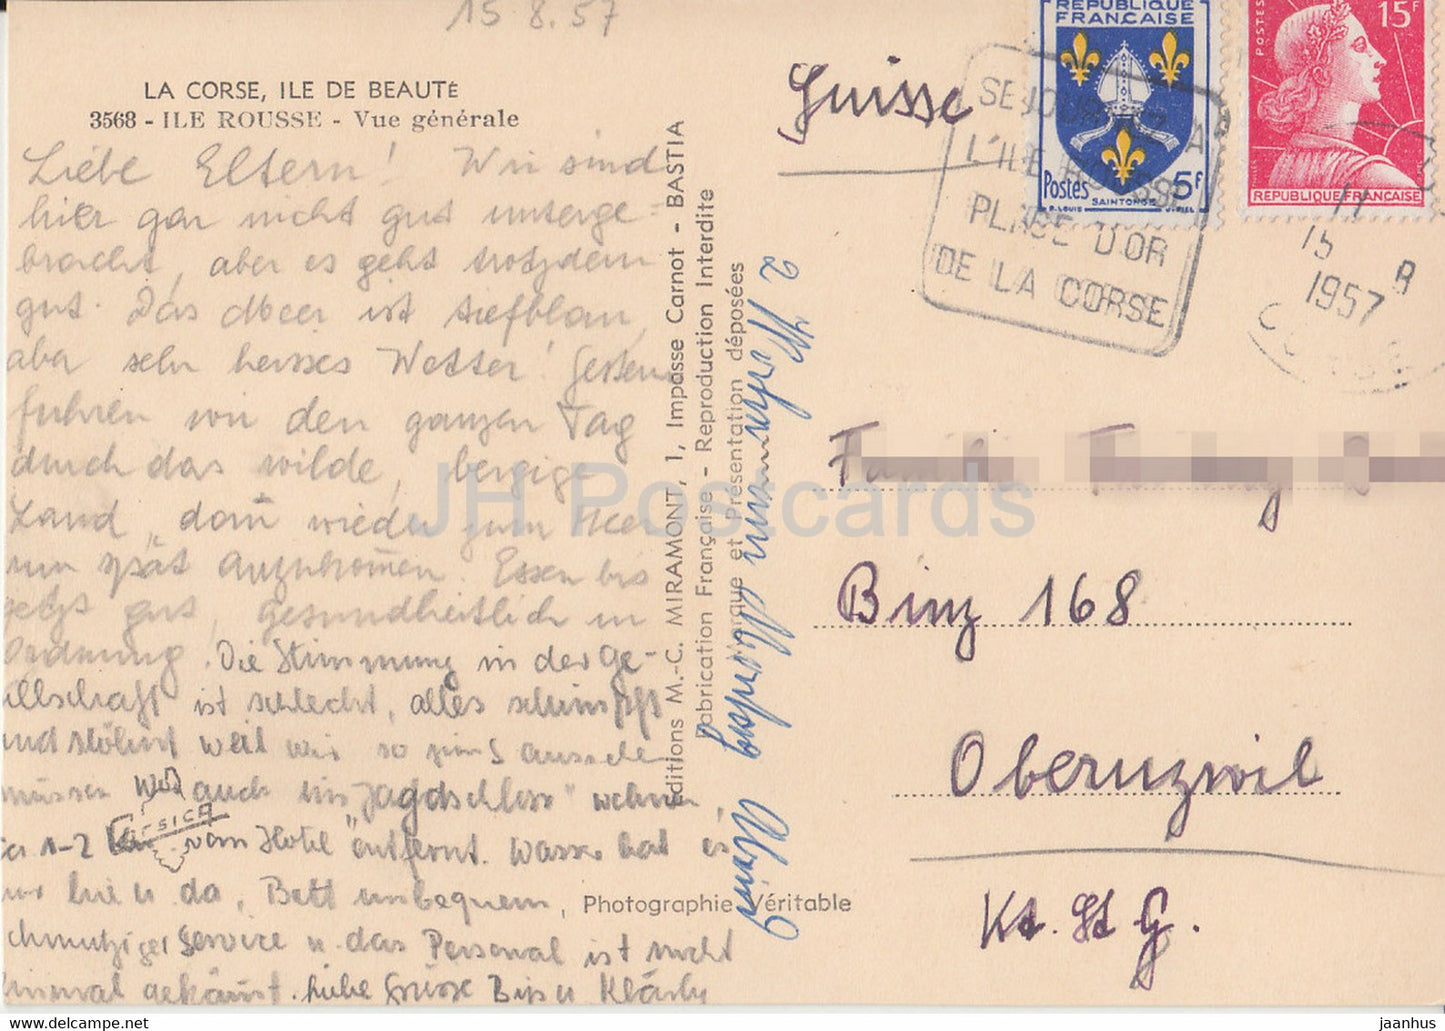 15.8.57
LA CORSE, ILE DE BEAUTÉ
3568 - ILE ROUSSE - Vue générale
Liebe Eltern! Wir sind
hier gar nicht gut unterge-
bracht, aber es geht trotzdem
gut. Das Meer ist tiefblau,
aber sehr heisses Wetter! Gestern
fuhren wir den ganzen Tag
durch das wilde, bergige
Land, dann wieder zum Meer
um spät anzukommen. Essen bis
jetzt gut, gesundheitlich in
Ordnung. Die Stimmung in der Ge-
sellschaft ist schlecht, alles schimpft
und stöhnt weil wir so
müssen auch im "Jagdschloss" wohnen,
1-2 vom Hotel entfernt. Wasser hat es
hie u da, Bett unbequem,
schmutziger Service u das Personal ist nicht
einmal gekämmt. Grüsse
CORSICA
Editions M.-C. MIRAMONT, 1, Impasse Carnot - BASTIA
Fabrication Française - Reproduction Interdite
et Présentation déposées
Photographie Véritable
Suisse
REPUBLIQUE
FRANÇAISE
Postes 5F
SAINTONGE
POSTES 15F
REPUBLIQUE FRANÇAISE
SEJOURNEZ A
L'ILE ROUSSE
PLAGE D'OR
DE LA CORSE
15 8
1957
Binz 168
Oberuzwil
Kt. St G.
JH Postcards
www.delcampe.net
jaanhus